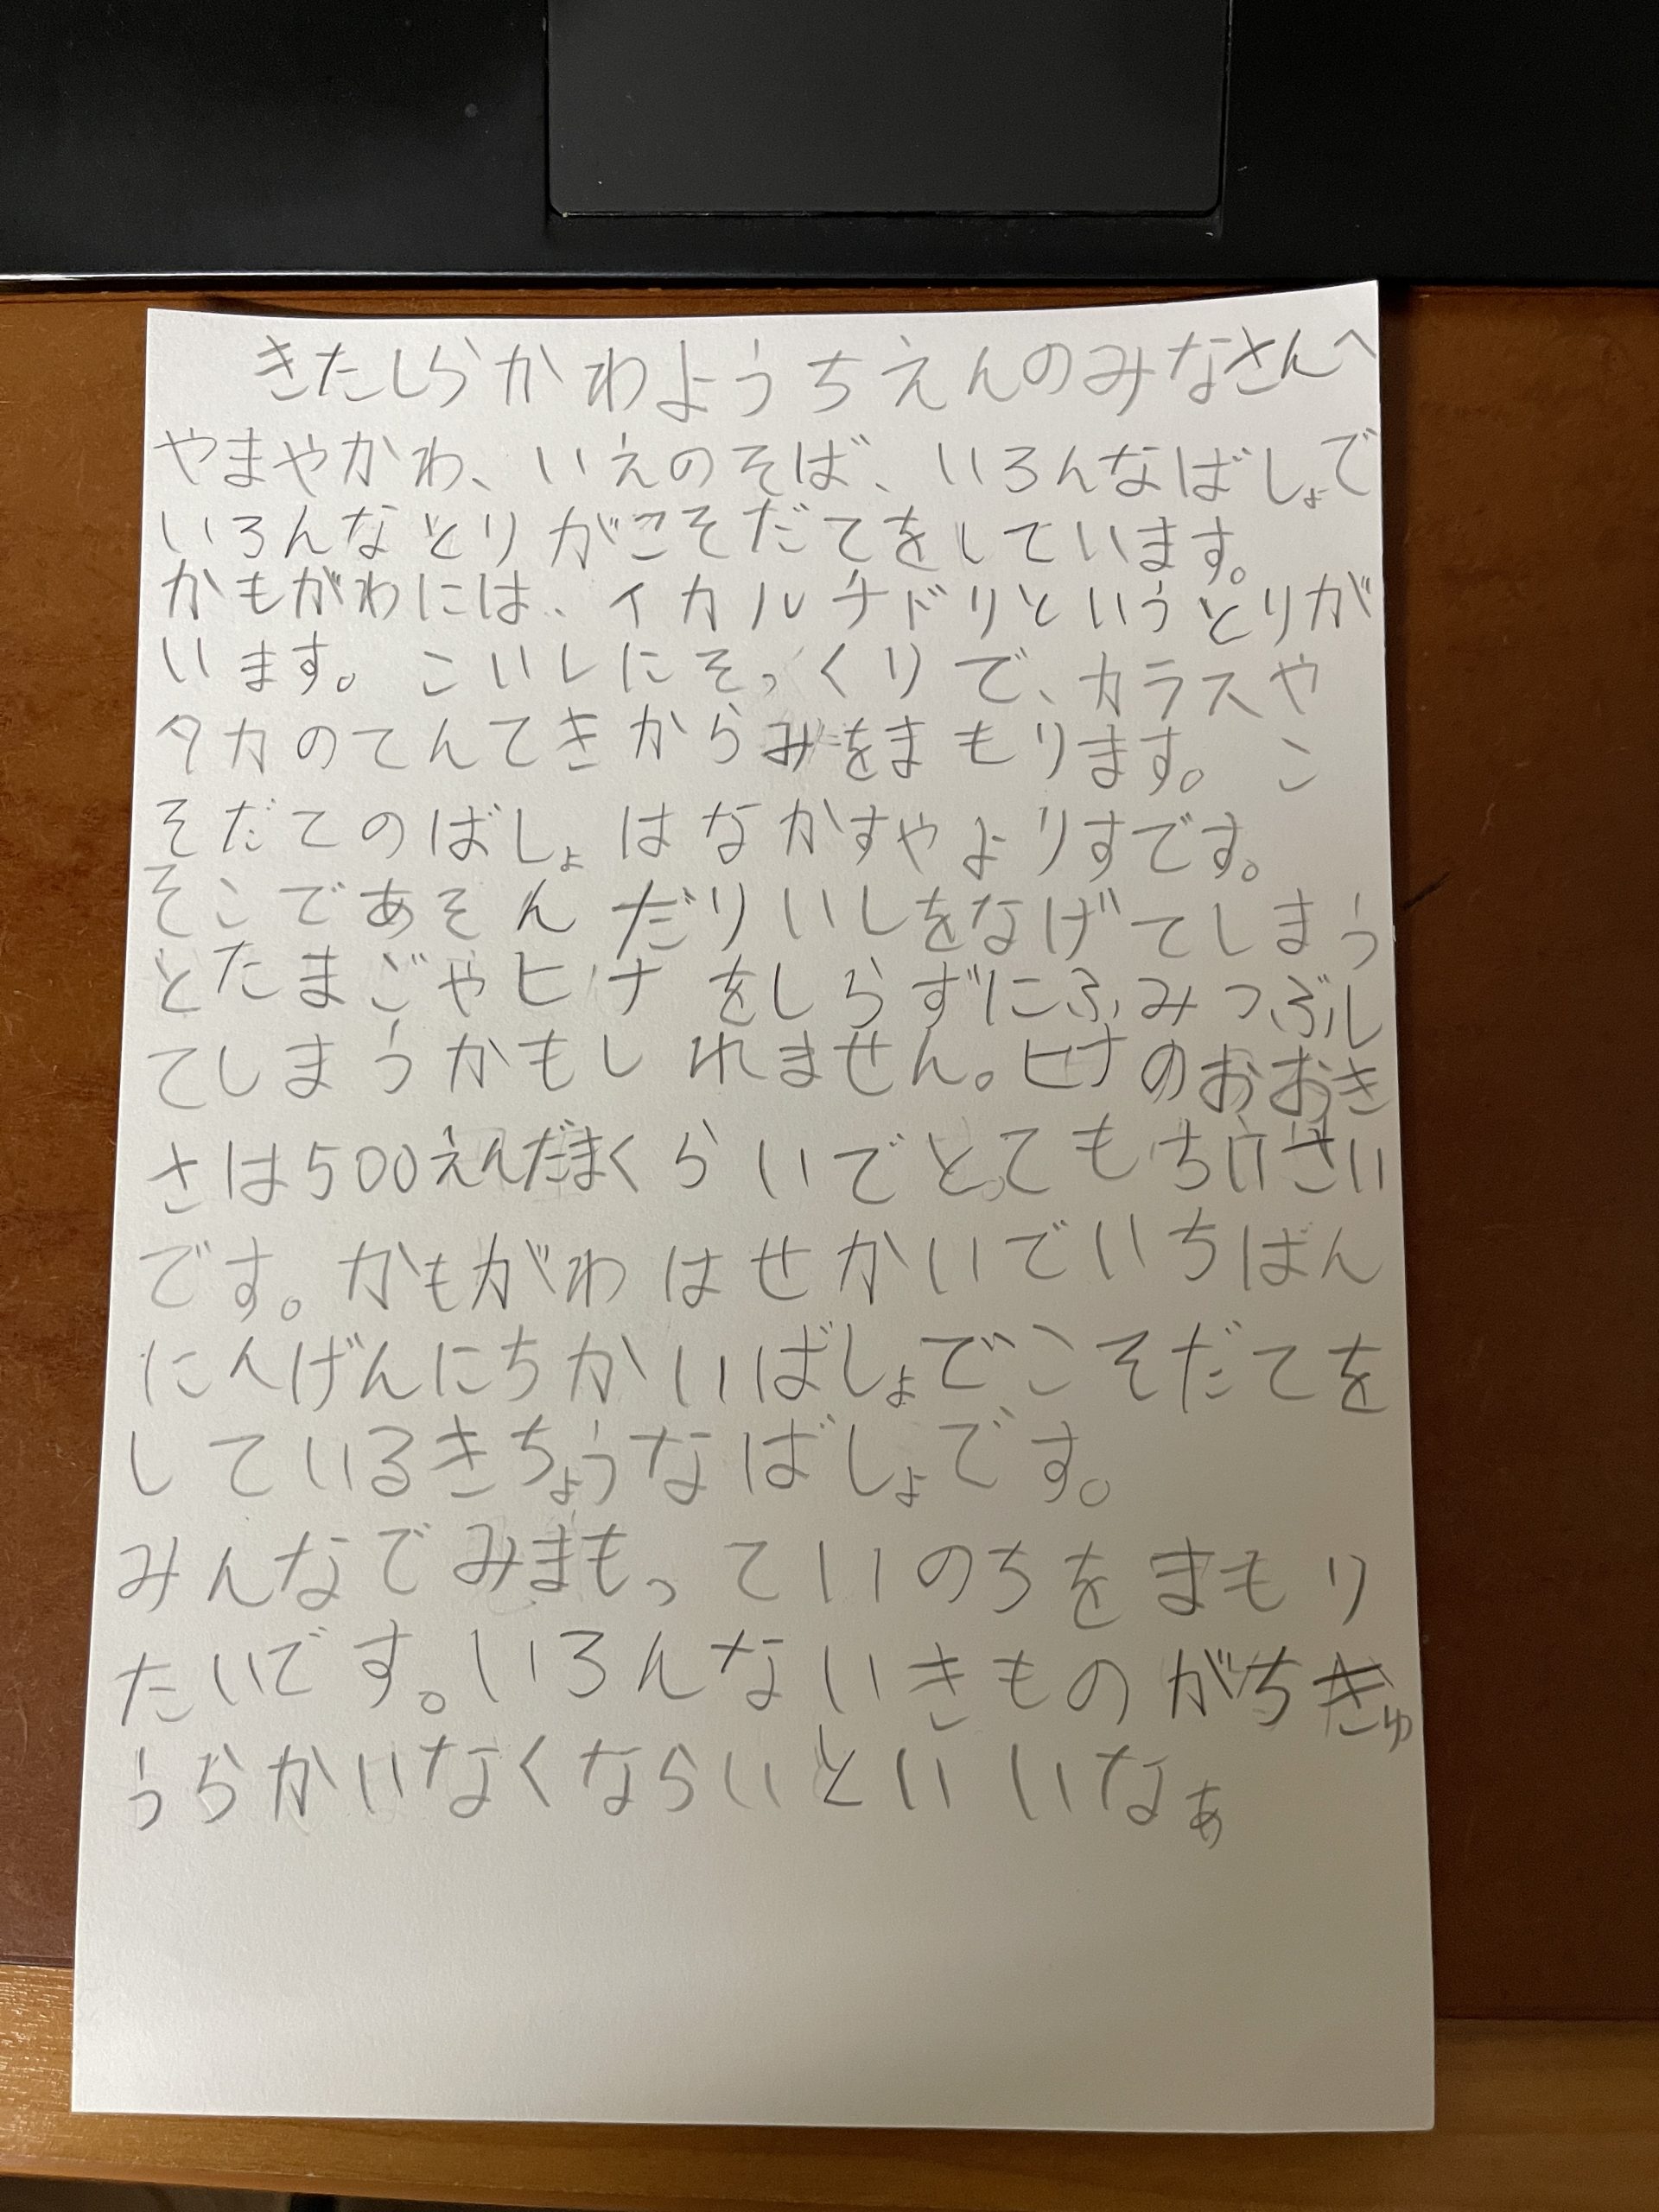 きたしらかわようちえんのみなさんへ
やまやかわ、いえのそば、いろんなばしょで
いろんなとりがこそだてをしています。
かもがわには、イカルチドリというとりが
います。こいしにそっくりで、カラスや
タカのてんてきからみをまもります。こ
そだてのばしょはなかすやよりすです。
そこであそんだりいしをなげてしまう
とたまごやヒナをしらずにふみつぶし
てしまうかもしれません。ヒナのおおき
さは500えんだまくらいでとてもちいさい
です。かもがわはせかいでいちばん
にんげんにちかいばしょでこそだてを
しているきちょうなばしょです。
みんなでみまもっていのちをまもり
たいです。いろんないきものがちきゅ
うらかいなくならいといいなぁ